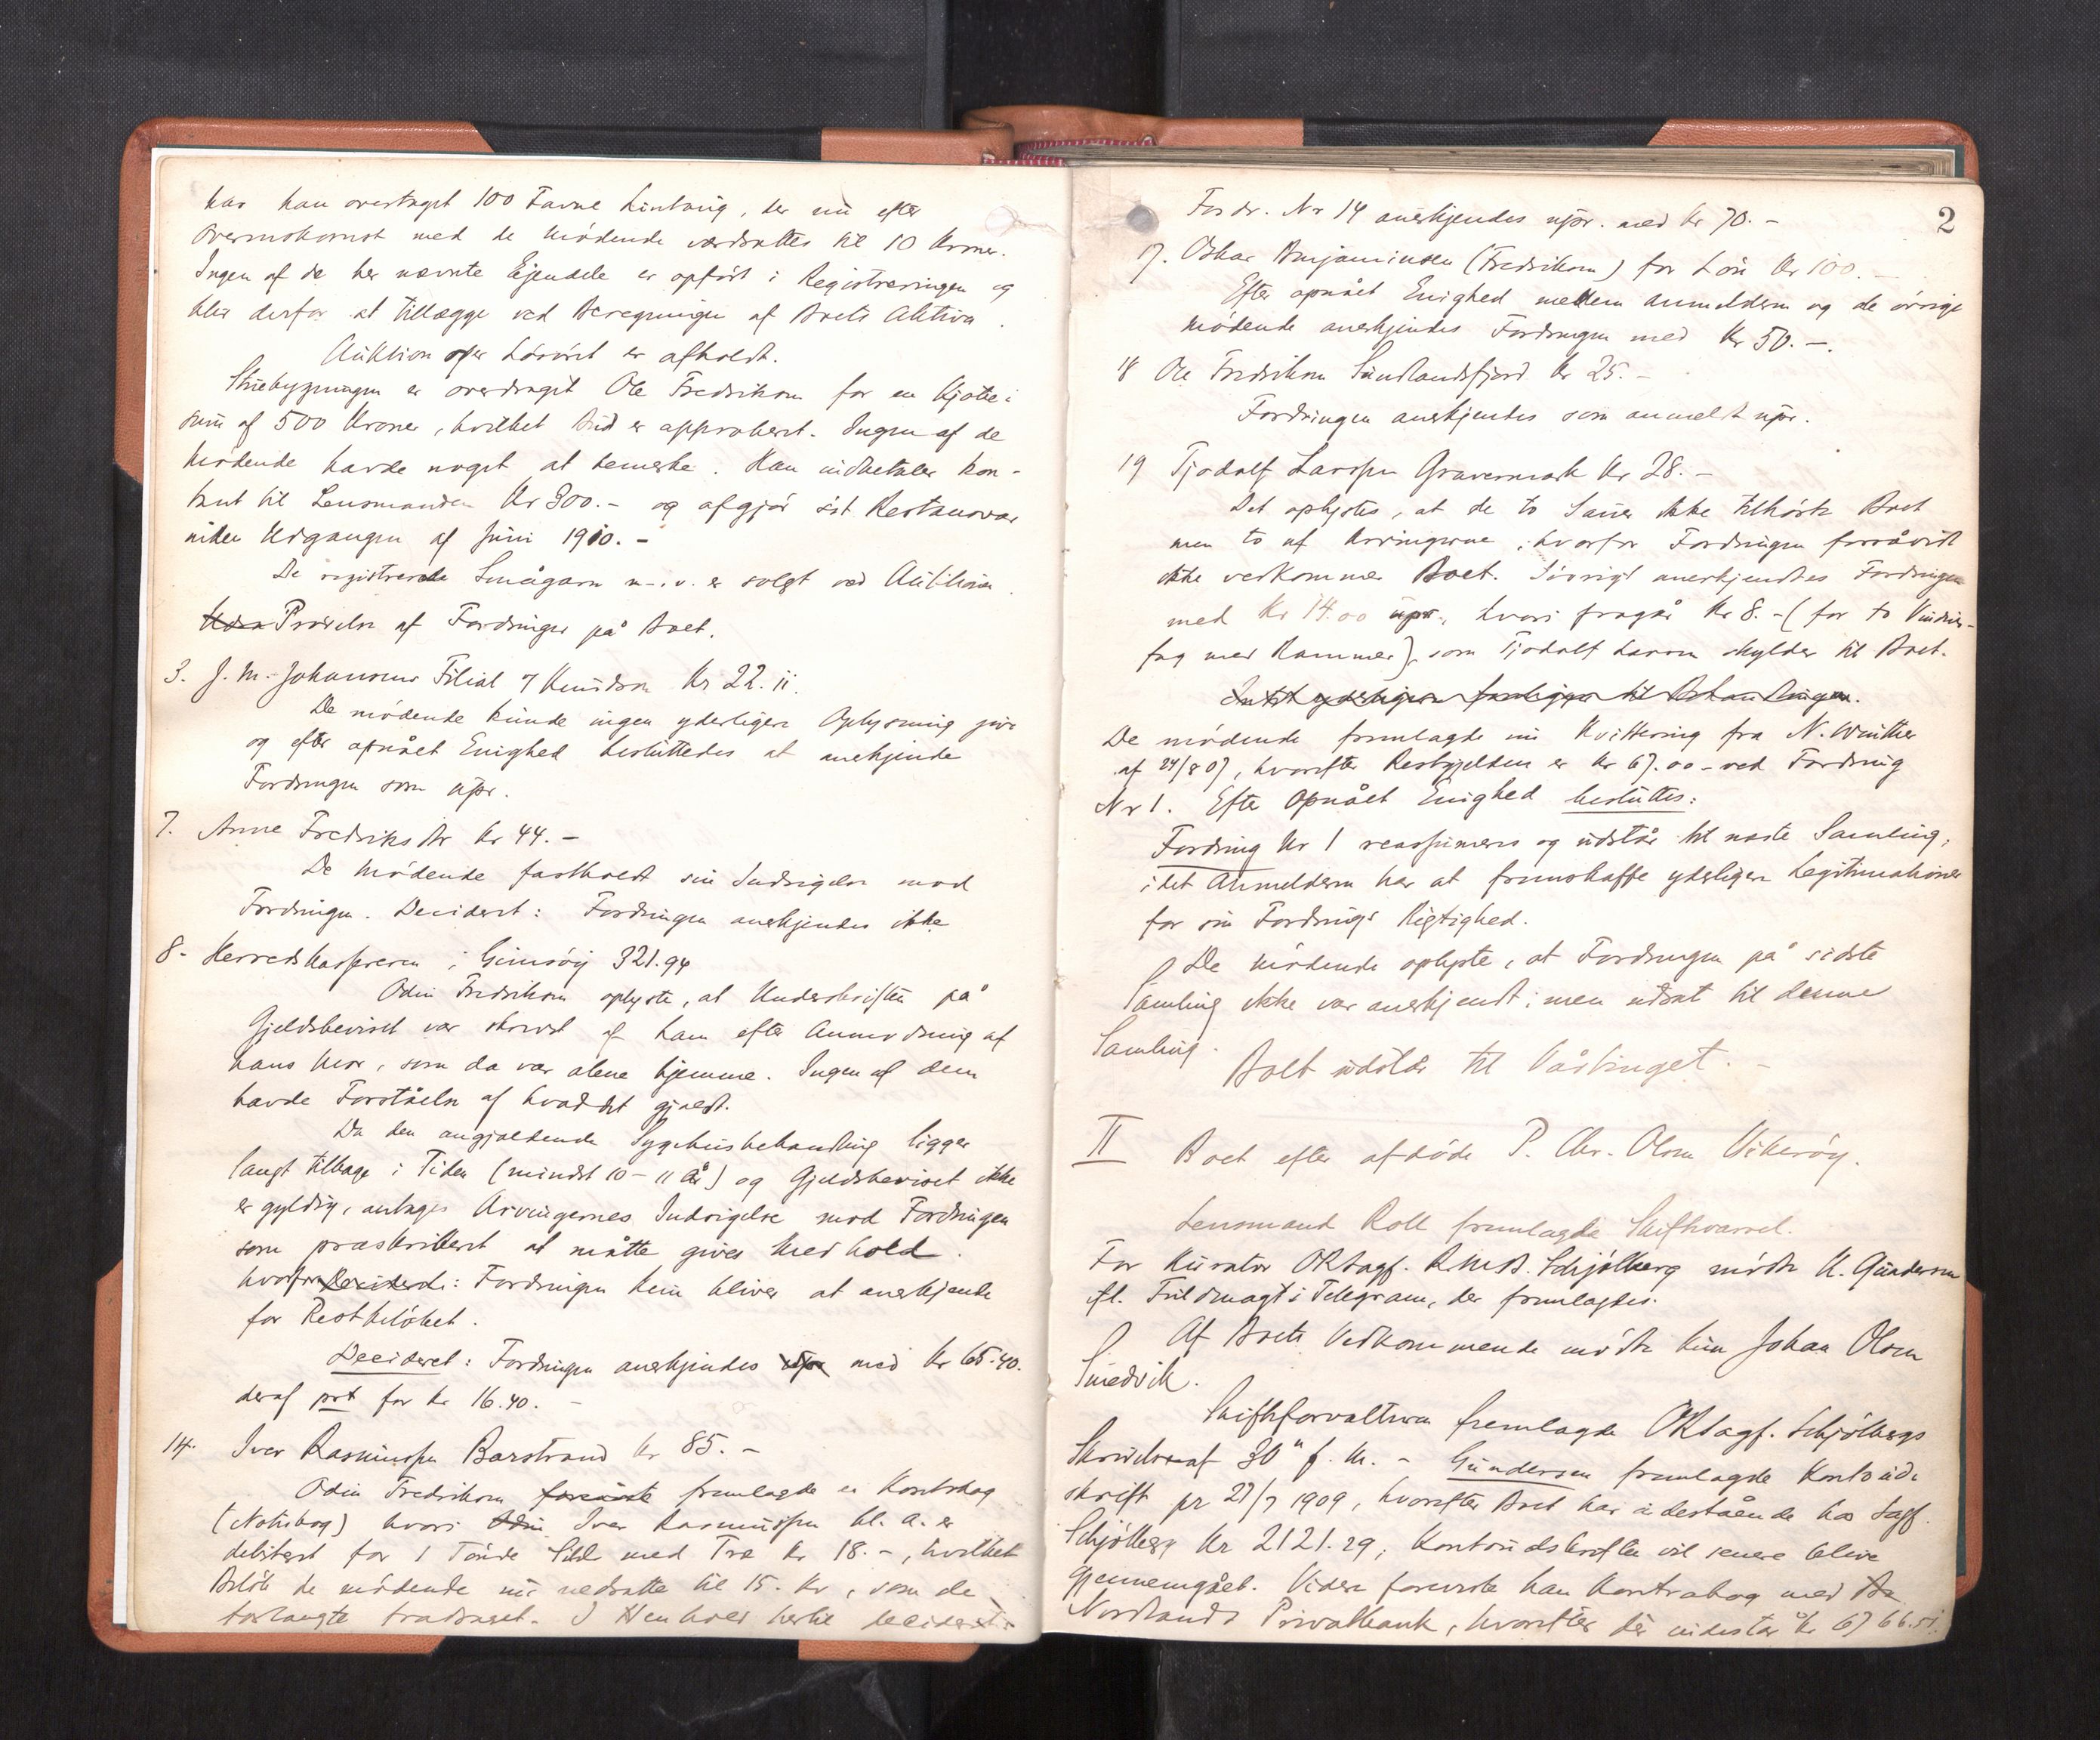 har han overtaget 100 Favne Lintoug, der nu efter
Overenskomst med de mødende værdsattes til 10 Kroner.
Ingen af de her nævnte Ejendele er opført i Registreringen og
blir derfor at tillægge ved Beregningen af Boets Aktiva.
Auktion over Løsøret er afholdt.
Stuebygningen er overdraget Ole Fredriksen for en Kjøbe-
sum af 500 Kroner, hvilket Bud er approberet. Ingen af de
mødende havde noget at bemerke. Han indbetaler kon-
tant til Lensmanden Kr 300.- og afgjør sit Restansvar
inden Udgangen af Juni 1910. -
De registrerede Smågarn m. v. er solgt ved Auktion.
Prøvelse af Fordringer på Boet.
3. J. M. Johansens Filial v/ Knudsen Kr 22.11.
De mødende kunde ingen yderligere Oplysning give
og efter opnået Enighed besluttedes at anerkjende
Fordringen som upr.
7. Anne Fredriks dtr Kr 44.-
De mødende fastholdt sin Indsigelse mod
Fordringen. Decideret: Fordringen anerkjendes ikke
8. Herredskassereren i Gimsøy 321.94
Odin Fredriksen oplyste, at Underskriften på
Gjeldsbeviset var skrevet af ham efter Anmodning af
hans Mor, som da var alene hjemme. Ingen af dem
havde Forståelse af hvad det gjaldt.
Da den angjældende Sygehusbehandling ligger
langt tilbage i Tiden (mindst 10-11 år) og Gjeldsbeviset ikke
er gyldig, antages Arvingernes Indsigelse mod Fordringen
som præskriberet at måtte gives Medhold.
hvorfor Decideret: Fordringen kun bliver at anerkjende
for Restbeløbet.
Decideret: Fordringen anerkjendes upr med Kr 65.40.
deraf prt for Kr 16.40. -
14. Iver Rasmussen Barstrand Kr 85.-
Odin Fredriksen foreviste fremlagde en Kontrabog
(Notisbog) hvori Odin Iver Rasmussen bl. a. er
debiteret for 1 Tønde Sild med Træ Kr 18.-, hvilket
Beløb de mødende nu nedsatte til 15. Kr, som de
forlangte fradraget. I Henhold hertil decideret:
2
Fordr. Nr 14 anerkjendes upr. med Kr 70.-
17. Oskar Benjaminsen (Fredriksen) for Løn Kr 100.-
Efter opnået Enighed mellem Anmelderen og de øvrige
mødende anerkjendes Fordringen med Kr 50.-.
18 Ole Fredriksen Sundlandsfjord Kr 25.-
Fordringen anerkjendes som anmeldt upr.
19 Tjodolf Larssen Gravermark Kr 28.-
Det oplystes, at de to Sauer ikke tilhørte Boet
men to af Arvingerne, hvorfor Fordringen forsåvidt
ikke vedkommer Boet. Iøvrigt anerkjendtes Fordringen
med Kr 14.00 upr., hvori fragår Kr 8.- (for to Vindus-
fag med Rammer), som Tjodolf Larsen skylder til Boet.
Intet yderligere foreligger til Behandlingen.
De mødende fremlagde nu Kvittering fra N. Winther
af 24/8 07, hvorefter Restgjelden er Kr 67.00 - ved Fordring
Nr 1. Efter Opnået Enighed besluttes:
Fordring Nr 1 reassumeres og udstår til næste Samling,
idet Anmelderen har at fremskaffe yderligere Legitimationer
for sin Fordrings Rigtighed.
De mødende oplyste, at Fordringen på sidste
Samling ikke var anerkjendt, men udsat til denne
Samling.
Boet udstår til Vårtinget. -
II Boet efter afdøde P. Chr. Olsen Vikerøy.
Lensmand Roll fremlagde Skiftevarsel.
For Kurator ORSagf. R. Schjølberg mødte K. Gundersen
ifl. Fuldmagt i Telegram, der fremlagdes.
Af Boets Vedkommende mødte kun Johan Olsen
Smedvik.
Skifteforvalteren fremlagde ORSagf. Schjølbergs
Skrivelse af 30te f. M. - Gundersen fremlagde Kontoud-
skrift pr 27/7 1909, hvorefter Boet har indestående hos Sagf.
Schjølberg Kr 2121.29, Kontoudskriften vil senere blive
gjennemgået. Videre foreviste han Kontrabog med Bo
Nordlands Privatbank, hvorefter der indestår Kr 6766.51.